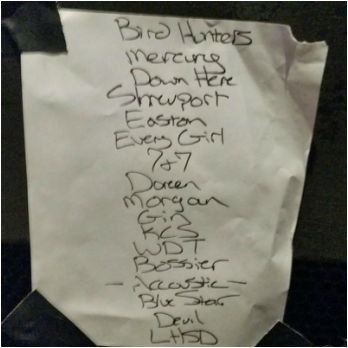 Bird Hunters
Mercury
Down Here
Shreveport
Easton
Every Girl
7&7
Doreen
Morgan
Gin
KCS
WDT
Bossier
- Accoustic -
Blue Star
Devil
LHSD